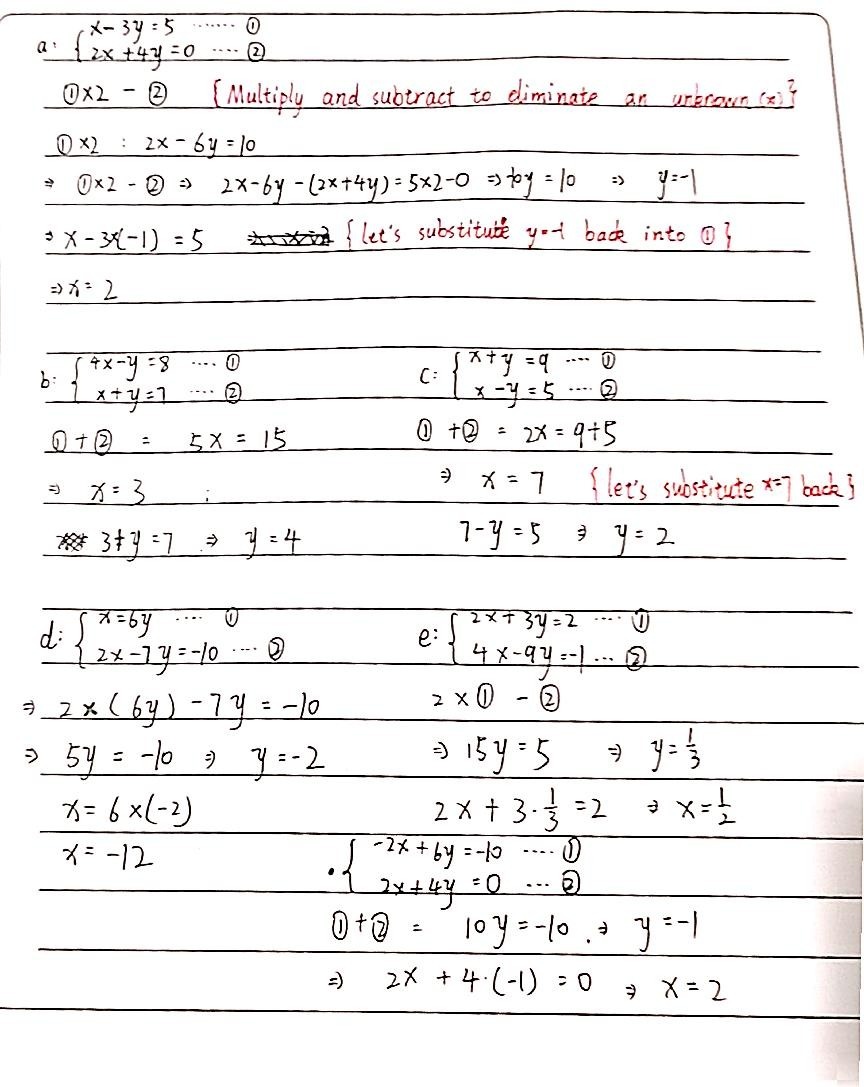 a: { x-3y=5 ······· ①
2x+4y=0 ···· ②
①×2 - ② {Multiply and subtract to eliminate an unknown (x)}
①×2 : 2x-6y=10
⇒ ①×2 - ② ⇒ 2x-6y-(2x+4y)=5×2-0 ⇒ 10y=10 ⇒ y=-1
⇒ x-3×(-1)=5 {let's substitute y=-1 back into ①}
⇒ x=2
b: { 4x-y=8 ···· ①
x+y=7 ···· ②
①+② = 5x=15
⇒ x=3 ;
3+y=7 ⇒ y=4
c: { x+y=9 ···· ①
x-y=5 ···· ②
①+② = 2x=9+5
⇒ x=7 {let's substitute x=7 back}
7-y=5 ⇒ y=2
d: { x=6y ···· ①
2x-7y=-10 ···· ②
⇒ 2×(6y)-7y=-10
⇒ 5y=-10 ⇒ y=-2
x=6×(-2)
x=-12
e: { 2x+3y=2 ···· ①
4x-9y=-1 ··· ②
2×① - ②
⇒ 15y=5 ⇒ y=1/3
2x+3·1/3=2 ⇒ x=1/2
· { -2x+6y=-10 ···· ①
2x+4y=0 ··· ②
①+② = 10y=-10 . ⇒ y=-1
⇒ 2x+4·(-1)=0 ⇒ x=2